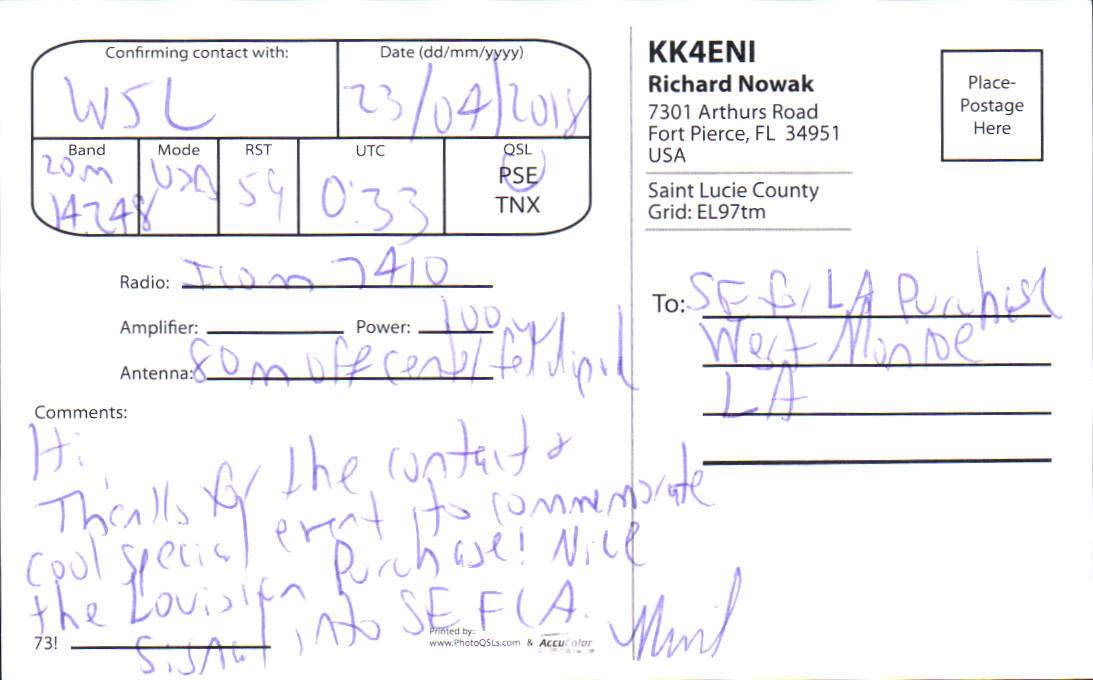 Confirming contact with:
W5L
Date (dd/mm/yyyy)
23/04/2018
Band
20m
14.248
Mode
USB
RST
59
UTC
0:33
QSL
PSE
TNX
Radio: Icom 7410
Amplifier: Power: 100w
Antenna: 80m off center fed dipol
Comments:
Hi,
Thanks for the contact &
cool special event to commemorate
the Louisian Purchase! Nice
signal into SE FLA.
73!
Printed by:
www.PhotoQSLs.com & AccuColor
KK4ENI
Richard Nowak
7301 Arthurs Road
Fort Pierce, FL 34951
USA
Saint Lucie County
Grid: EL97tm
Place-
Postage
Here
To: SE for LA Purchase
West Monroe
LA